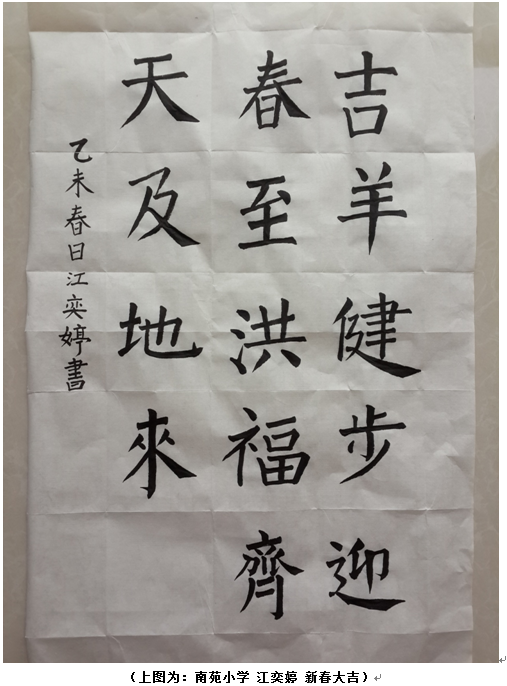 吉羊健步迎
春至洪福齊
天及地來
乙未春日江奕婷書
（上图为：南苑小学 江奕婷 新春大吉）